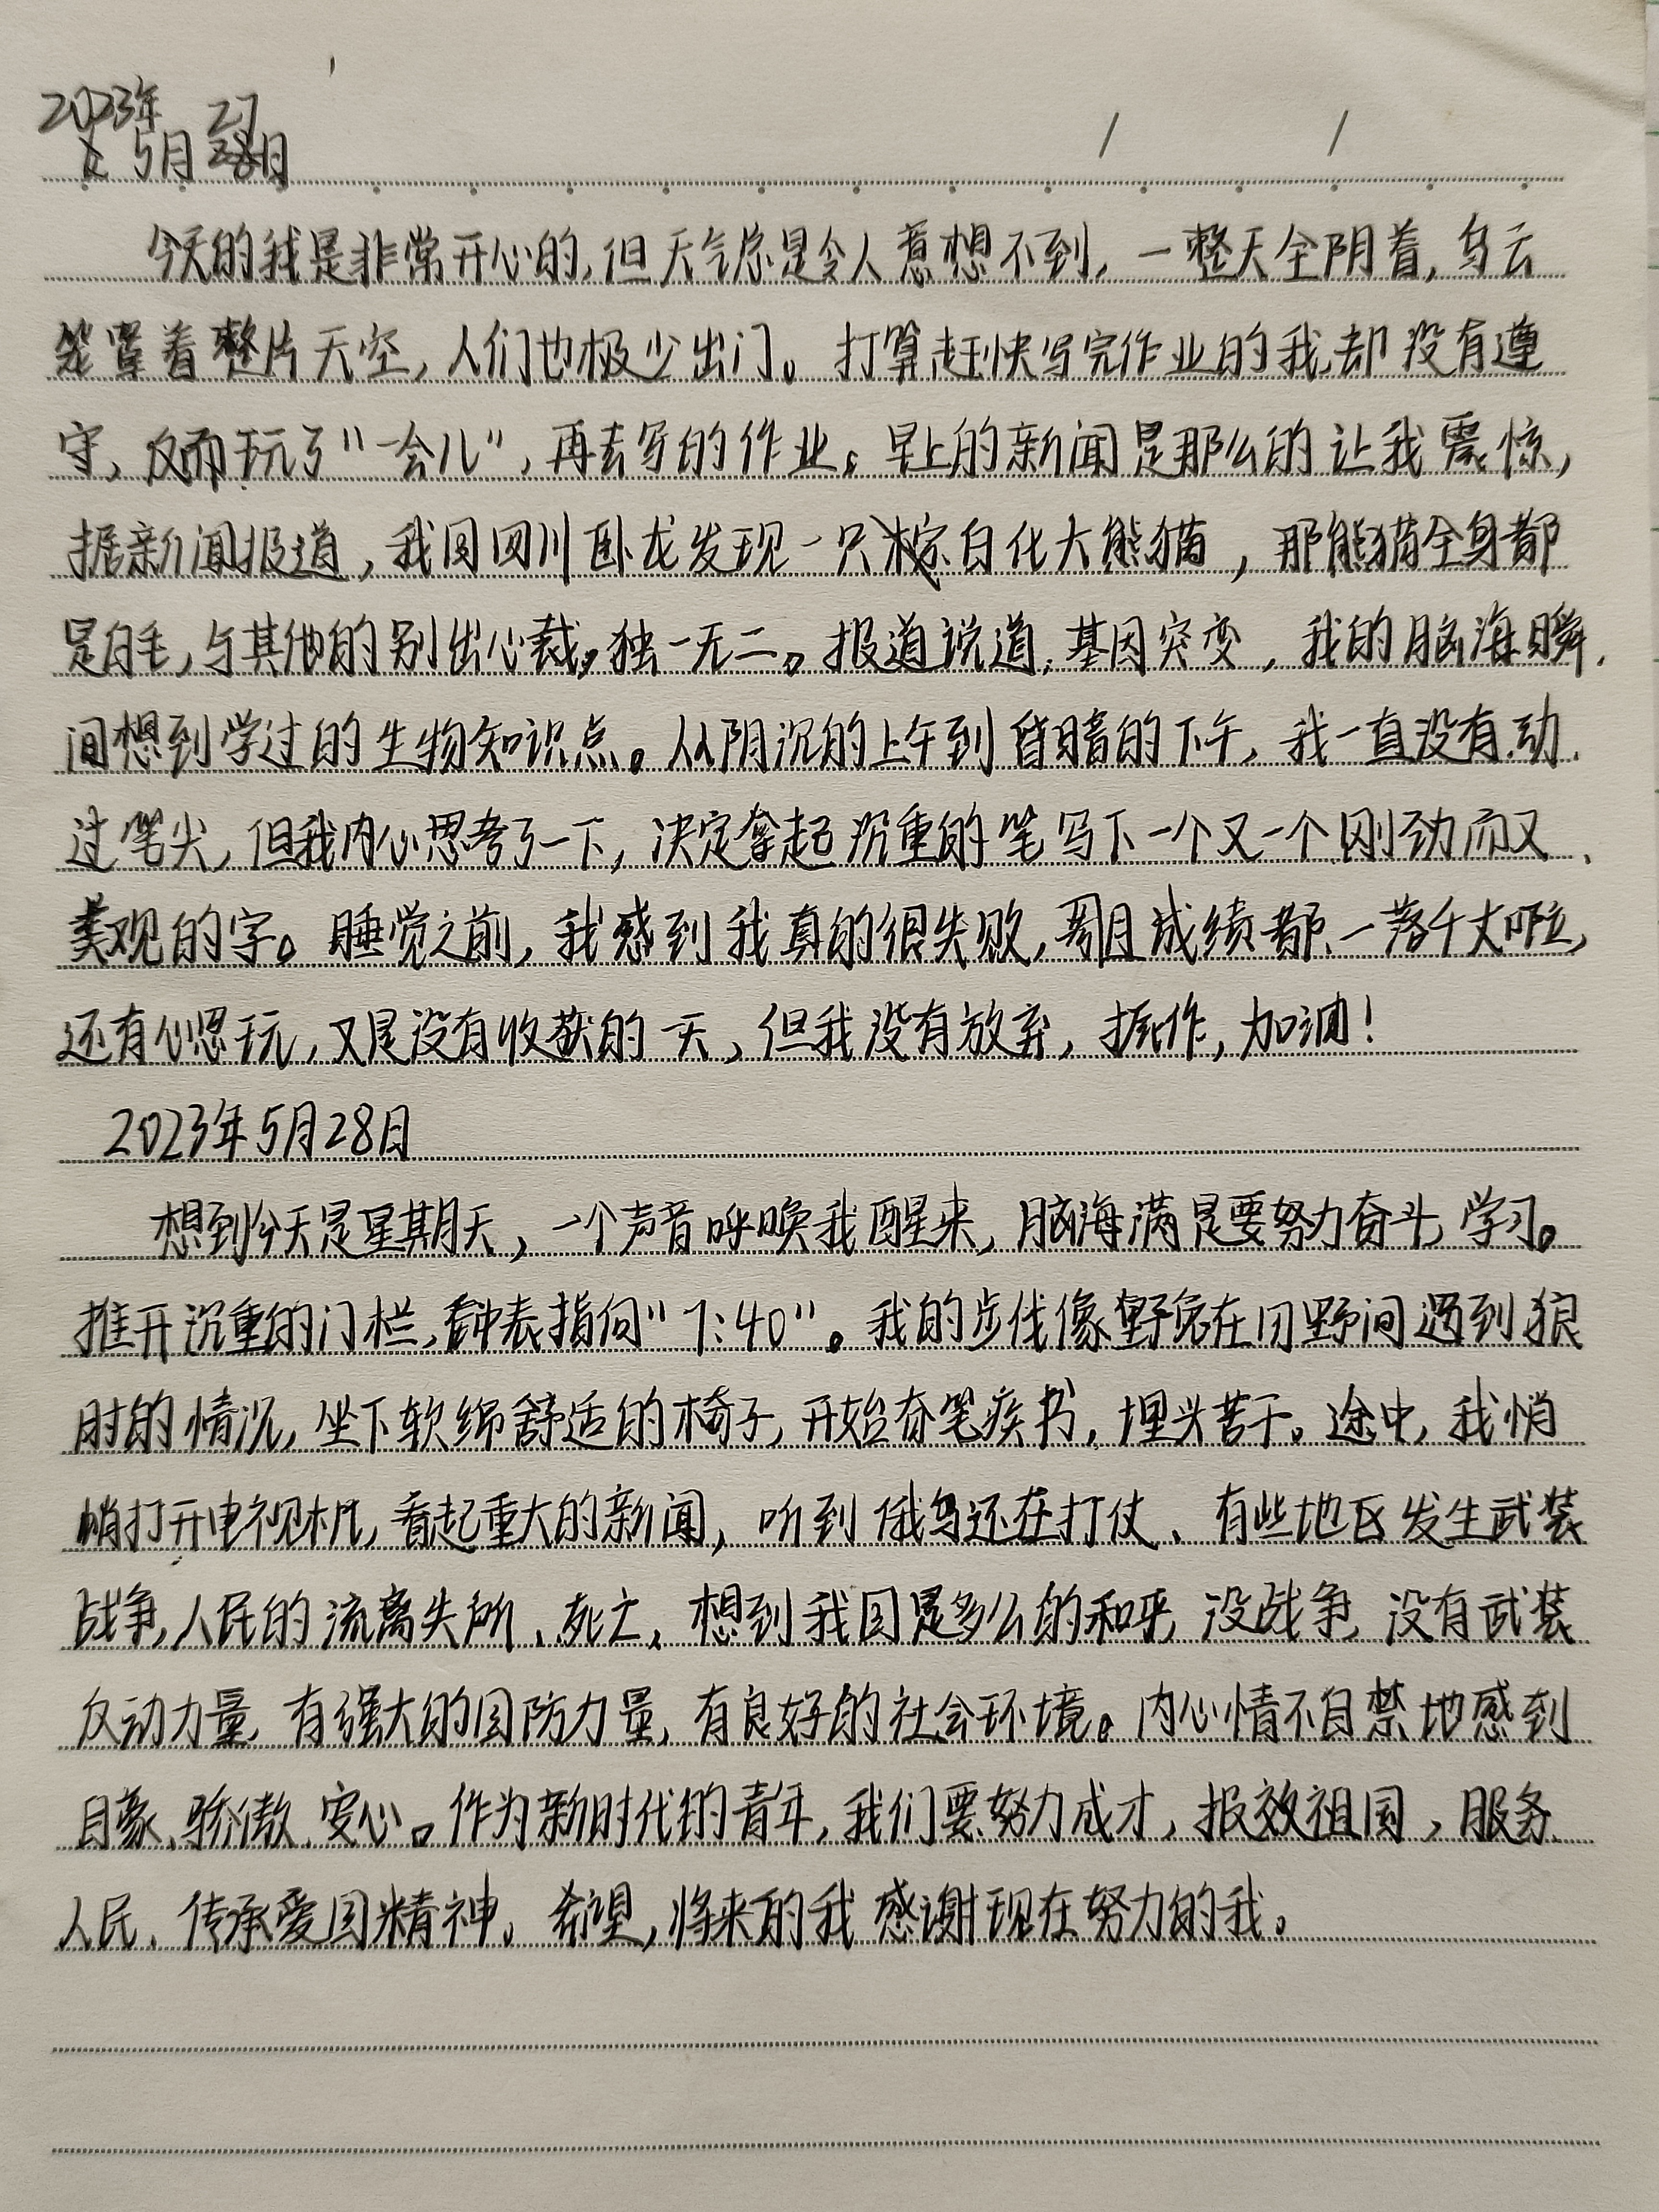 2023年 27
5月28日
今天的我是非常开心的,但天气总是令人意想不到,一整天全阴着,乌云
笼罩着整片天空,人们也极少出门。打算赶快写完作业的我,却没有遵
守,反而玩了"一会儿",再去写的作业。早上的新闻是那么的让我震惊,
据新闻报道,我国四川卧龙发现一只棕白化大熊猫,那熊猫全身都
是白毛,与其他的别出心裁,独一无二。报道说道,基因突变,我的脑海瞬
间想到学过的生物知识点。从阴沉的上午到昏暗的下午,我一直没有动
过笔尖,但我内心思考了一下,决定拿起沉重的笔写下一个又一个刚劲而又
美观的字。睡觉之前,我感到我真的很失败,周成绩都一落千丈啦,
还有心思玩,又是没有收获的一天,但我没有放弃,振作,加油!
2023年5月28日
想到今天是星期天,一个声音呼唤我醒来,脑海满是要努力奋斗,学习。
推开沉重的门栏,钟表指向"7:40"。我的步伐像野兔在田野间遇到狼
时的情况,坐下软绵舒适的椅子,开始奋笔疾书,埋头苦干。途中,我悄
悄打开电视机,看起重大的新闻,听到俄乌还在打仗、有些地区发生武装
战争,人民的流离失所、死亡,想到我国是多么的和平,没战争,没有武装
反动力量,有强大的国防力量,有良好的社会环境。内心情不自禁地感到
自豪、骄傲、安心。作为新时代的青年,我们要努力成才,报效祖国,服务
人民、传承爱国精神。希望,将来的我感谢现在努力的我。